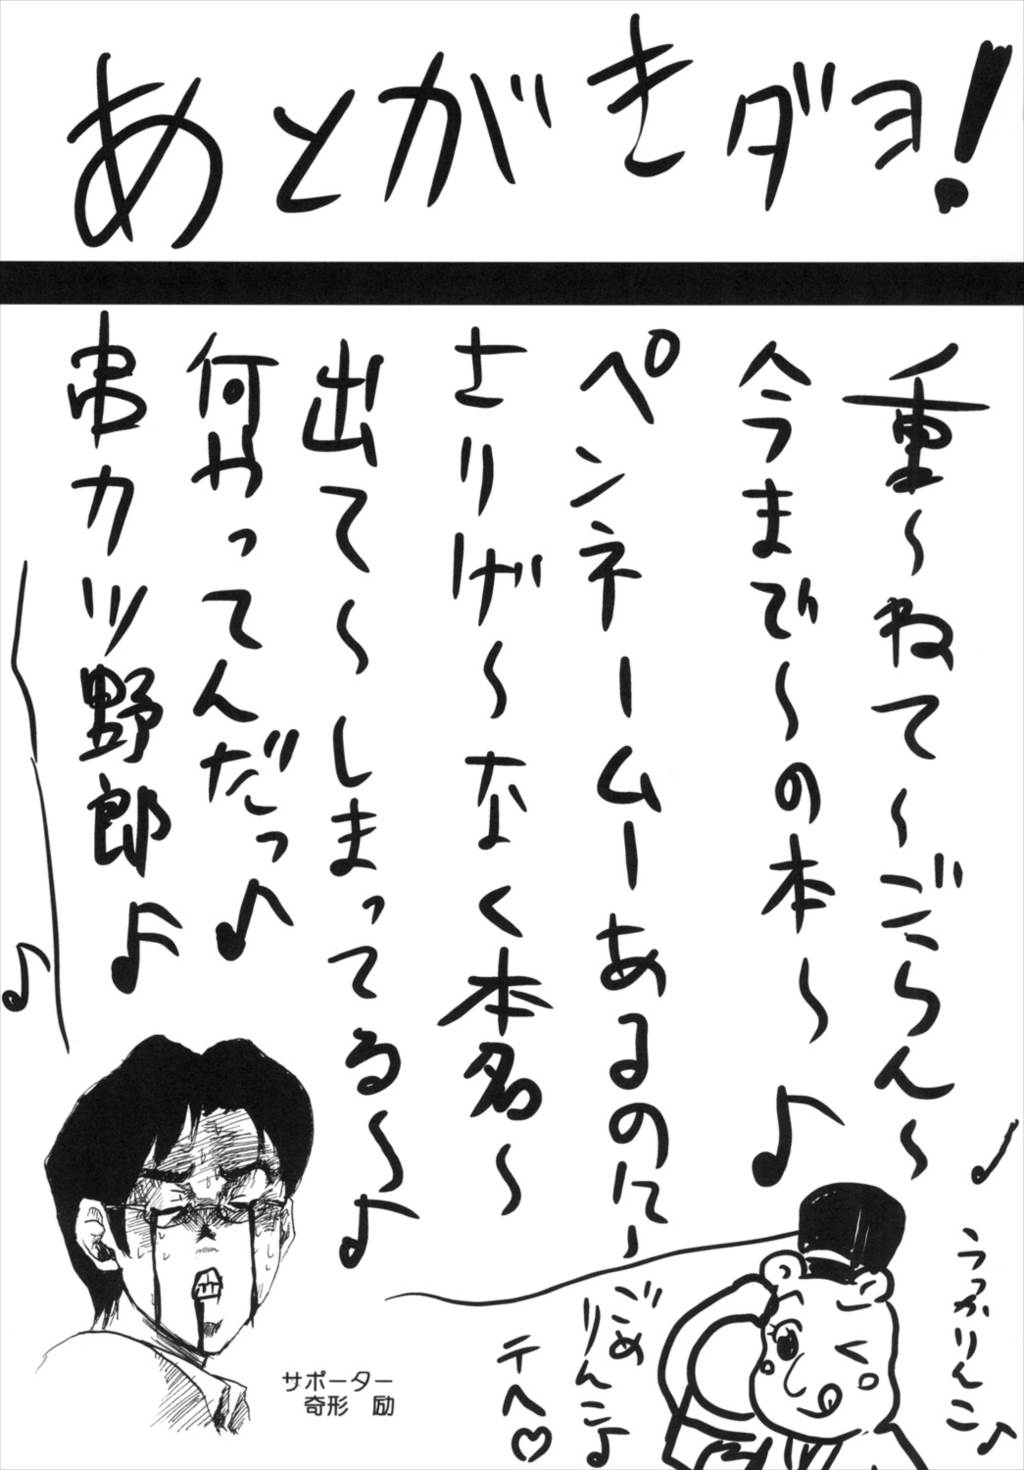 あとがきダヨ!
重〜ねて〜ごらん〜
今まで〜の本〜♪
ペンネームーあるのに〜
さりげ〜なく本名〜
出て〜しまってる〜♪
何やってんだっ♪
串カツ野郎♪
♪
♪
うっかりんこ♪
ごめ
りんこ♪
テヘ♡
サポーター
奇形 励